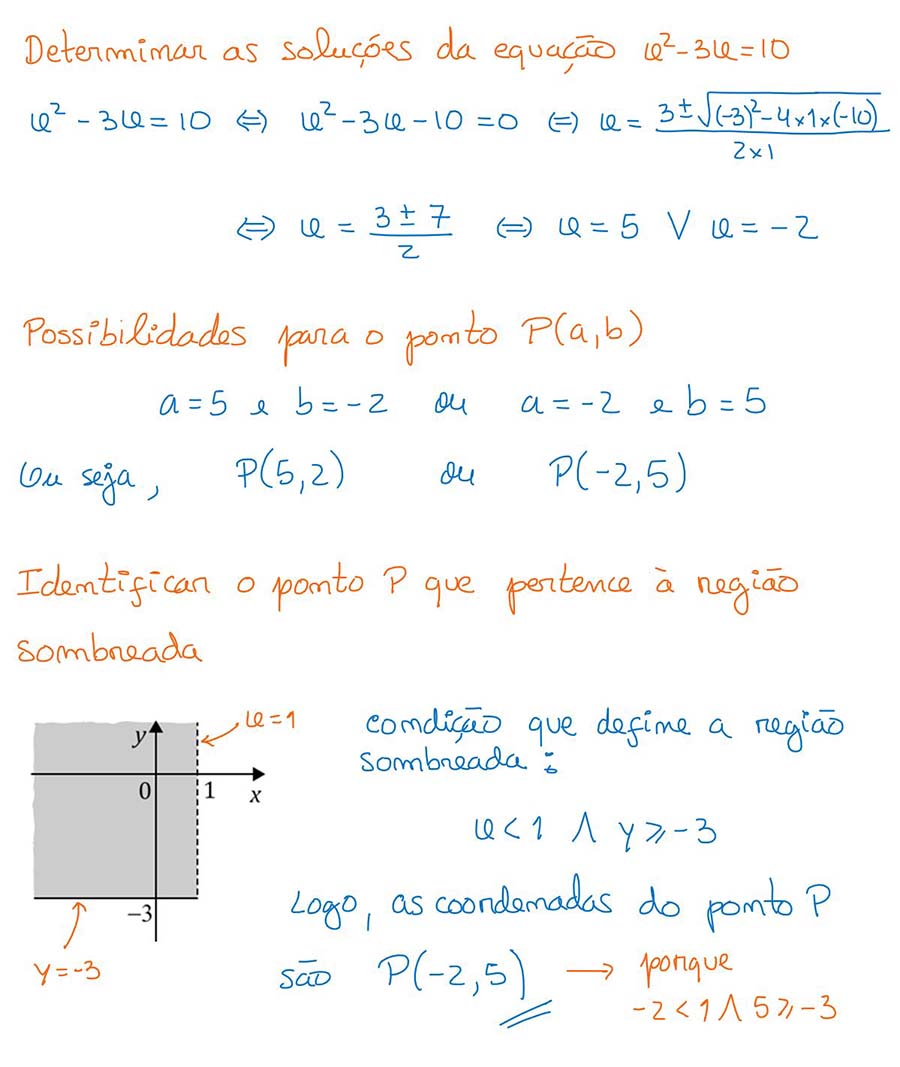 Determinar as soluções da equação x²-3x=10
x²-3x=10 ⇔ x²-3x-10=0 ⇔ x = (3±√((-3)²-4×1×(-10)))/(2×1)
⇔ x = (3±7)/2 ⇔ x=5 ∨ x=-2
Possibilidades para o ponto P(a,b)
a=5 e b=-2 ou a=-2 e b=5
Ou seja, P(5,2) ou P(-2,5)
Identificar o ponto P que pertence à região
sombreada
x=1
y
0 1 x
-3
y=-3
condição que define a região
sombreada:
x<1 ∧ y⩾-3
Logo, as coordenadas do ponto P
são P(-2,5) → porque
-2<1 ∧ 5⩾-3